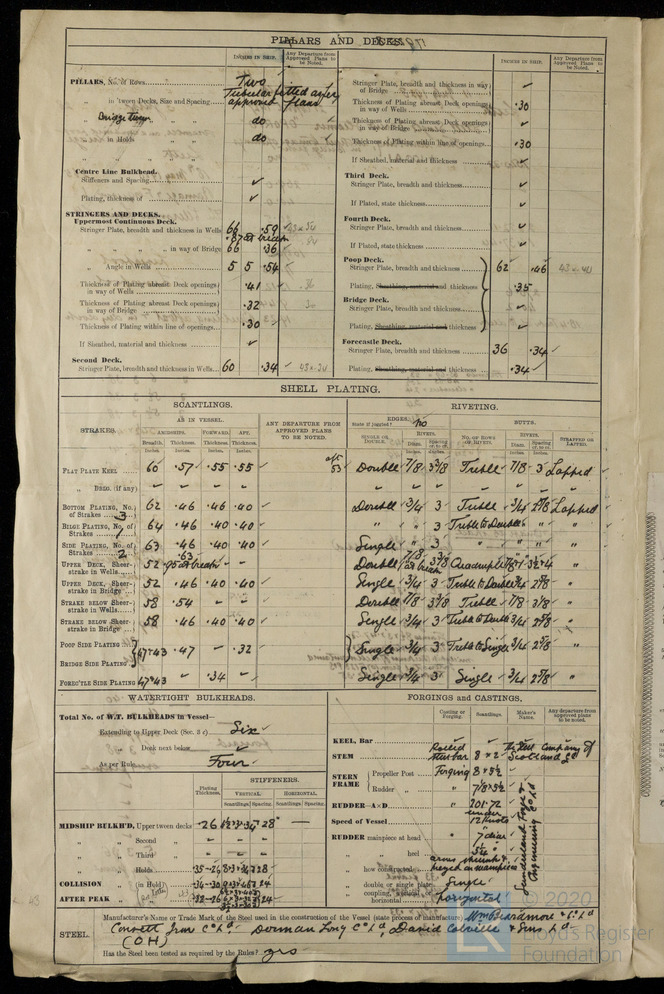 PILLARS AND DECKS.
INCHES IN SHIP.
Any Departure from Approved Plans to be Noted.
PILLARS, No. of Rows Two
in 'tween Decks, Size and Spacing Tubular fitted as per approved plans
Bridge tween do
in Holds do
Centre Line Bulkhead.
Stiffeners and Spacing ✓
Plating, thickness of ✓
STRINGERS AND DECKS.
Uppermost Continuous Deck.
Stringer Plate, breadth and thickness in Wells 66 .59
.87 at break
" " " in way of Bridge 66 .36
" Angle in Wells 5 5 .54
Thickness of Plating abreast Deck openings in way of Wells .41
Thickness of Plating abreast Deck openings in way of Bridge .32
Thickness of Plating within line of openings .30
If Sheathed, material and thickness ✓
Second Deck.
Stringer Plate, breadth and thickness in Wells 60 .34
INCHES IN SHIP.
Any Departure from Approved Plans to be Noted.
Stringer Plate, breadth and thickness in way of Bridge ✓
Thickness of Plating abreast Deck openings in way of Wells .30
Thickness of Plating abreast Deck openings in way of Bridge ✓
Thickness of Plating within line of openings .30
If Sheathed, material and thickness ✓
Third Deck.
Stringer Plate, breadth and thickness ✓
If Plated, state thickness ✓
Fourth Deck.
Stringer Plate, breadth and thickness ✓
If Plated, state thickness ✓
Poop Deck.
Stringer Plate, breadth and thickness 62 .46
Plating, Sheathing, material and thickness .35
Bridge Deck.
Stringer Plate, breadth and thickness
Plating, Sheathing, material and thickness
Forecastle Deck.
Stringer Plate, breadth and thickness 36 .34
Plating, Sheathing, material and thickness .34
SHELL PLATING.
SCANTLINGS.
RIVETING.
STRAKES.
AS IN VESSEL.
AMIDSHIPS. FORWARD. AFT.
Breadth. Thickness. Thickness. Thickness.
ANY DEPARTURE FROM APPROVED PLANS TO BE NOTED.
EDGES.
State if joggled? no
SINGLE OR DOUBLE.
RIVETS.
BUTTS.
NO. OF ROWS OF RIVETS.
RIVETS.
STRAPPED OR LAPPED.
FLAT PLATE KEEL 60 .57 .55 .55 Double 7/8 3 3/8 Treble 7/8 3 Lapped
" DBLG. (if any)
BOTTOM PLATING, No. of Strakes 3 62 .46 .46 .40 Double 3/4 3 Treble 3/4 2 5/8 Lapped
BILGE PLATING, No. of Strakes 1 64 .46 .40 .40 " " 3 Treble to Double " " "
SIDE PLATING, No. of Strakes 2 63 .46 .40 .40 Single " 3 " " " "
UPPER DECK, Sheerstrake in Wells 52 .63 .95 at break Double 7/8 3 3/8 Quadruple
UPPER DECK, Sheerstrake in Bridge 52 .46 .40 .40 Single 3/4 3 Treble to Double 3/4 2 5/8 "
STRAKE BELOW Sheerstrake in Wells 58 .54 - - Double 7/8 3 3/8 Treble 7/8 3 1/8 "
STRAKE BELOW Sheerstrake in Bridge 58 .46 .40 .40 Single 3/4 3 Treble to Double 3/4 2 5/8 "
POOP SIDE PLATING
BRIDGE SIDE PLATING 67 & 43 .47 - .32 Single 3/4 3 Treble to Single 3/4 2 5/8 "
FOREC'TLE SIDE PLATING 67 & 43 .34 - Single 3/4 3 Single 3/4 2 5/8 "
WATERTIGHT BULKHEADS.
Total No. of W.T. BULKHEADS in Vessel—
Extending to Upper Deck (Sec. 3 c) Six
" Deck next below ✓
As per Rule Four
STIFFENERS.
Plating Thickness.
VERTICAL. HORIZONTAL.
Scantlings. Spacing. Scantlings. Spacing.
MIDSHIP BULKH'D, Upper tween decks .26 28"
" " Second " - - -
" " Third " - - -
" " Holds .35-.26 28
COLLISION " (in Hold) .36-.30 24
AFTER PEAK " " 24
FORGINGS and CASTINGS.
Casting or Forging. Scantlings. Maker's Name. Any departure from approved plans to be noted.
KEEL, Bar
STEM Rolled steel bar 8 x 2 The Steel Company of Scotland Ld
STERN FRAME Propeller Post Forging 8 x 5 1/2
Rudder " " 7/8 x 5 1/2
RUDDER—A×D " 201.72
Speed of Vessel under 12 knots
RUDDER mainpiece at head " 7" diar
" " heel " 5 1/4"
" how constructed arms shrunk & keyed on mainpiece
" double or single plate Single
" coupling, vertical or horizontal horizontal
Sunderland Forge & Engineering Co Ld
STEEL.
Manufacturer's Name or Trade Mark of the Steel used in the construction of the Vessel (state process of manufacture) Wm Beardmore & Co Ld
Consett Iron Co Ld. Dorman Long Co Ld, David Colville & Sons Ld.
(O H)
Has the Steel been tested as required by the Rules? yes
© 2020
LR
Lloyd's Register
Foundation